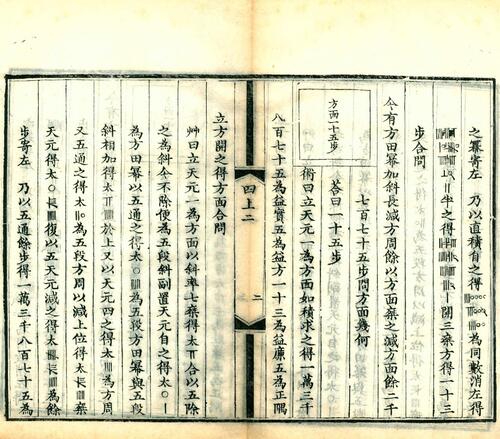 之羃寄左 乃以直積自之得為同數消左得
半之得開三乘方得一十三
步合問
今有方田羃加斜長減方周餘以方面乘之減方面餘二千
七百七十五步問方面幾何
荅曰一十五步
方面一十五步
術曰立天元一為方面如積求之得一萬三千
八百七十五為益實五為益方一十三為益廉五為正隅
四上二
二
立方開之得方面合問
艸曰立天元一為方面以斜率七乘得太合以五除
之為斜今不除便為五段斜副置天元自之得太〇|
為方田羃以五通之得太〇為五段方田羃與五段
斜相加得太於上又以天元四之得太為方周
又五通之得太為五段方周以減上位得太乘
天元得太〇復以五天元減之得太為餘
步寄左 乃以五通餘步得一萬三千八百七十五為